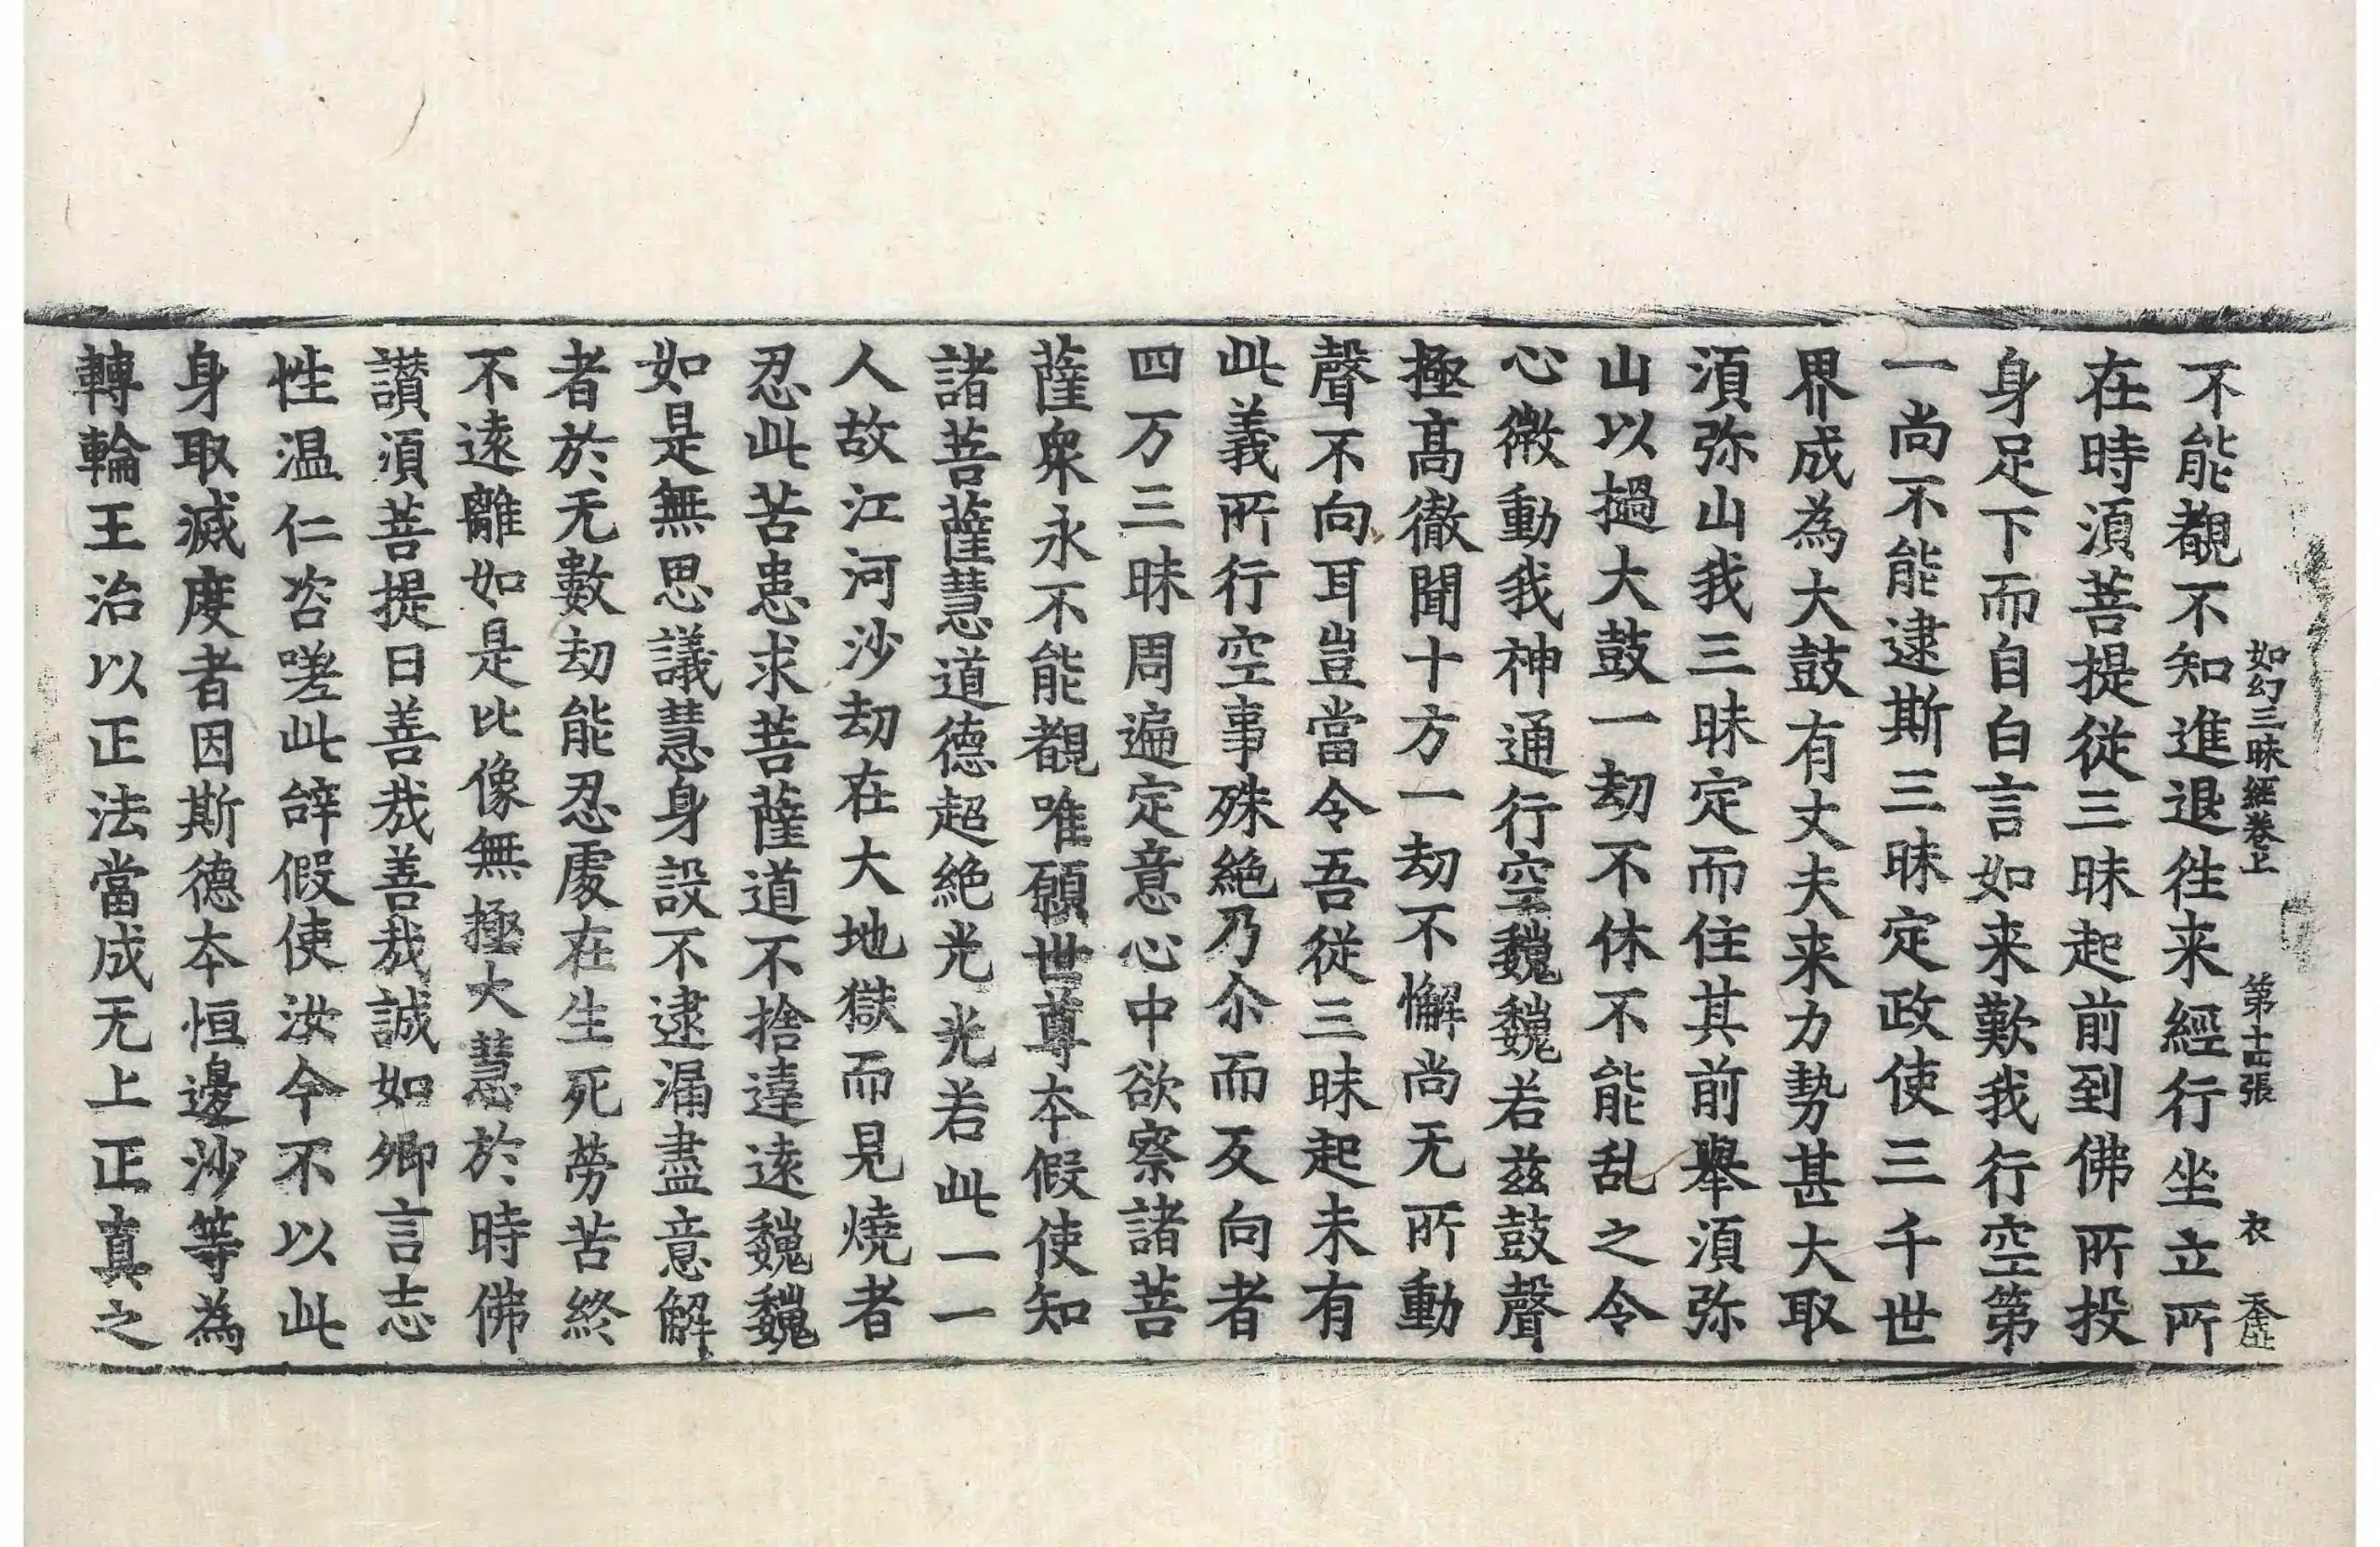 如幻三昧經卷上 第十四張 衣
不能覩不知進退徃来經行坐立所
在時湏菩提從三昧起前到佛所投
身足下而自白言如来歎我行空第
一尚不能逮斯三昧定政使三千世
界成為大鼓有丈夫来力勢甚大取
湏弥山我三昧定而住其前舉湏弥
山以撾大鼓一劫不休不能乱之令
心微動我神通行空巍巍若兹鼓聲
極髙徹聞十方一劫不懈尚无所動
聲不向耳豈當令吾從三昧起未有
此義所行空事殊絶乃尒而反向者
四万三昧周遍定意心中欲察諸菩
薩衆永不能覩唯願世尊本假使知
諸菩薩慧道德超絶光光若此一一
人故江河沙劫在大地獄而見燒者
忍此苦患求菩薩道不捨逺逺巍巍
如是無思議慧身設不逮漏盡意解
者於无數劫能忍處在生死勞苦終
不逺離如是比像無極大慧於時佛
讃湏菩提曰善哉善哉誠如卿言志
性温仁咨嗟此辝假使汝今不以此
身取滅度者因斯德本恒邊沙等為
轉輪王治以正法當成无上正真之